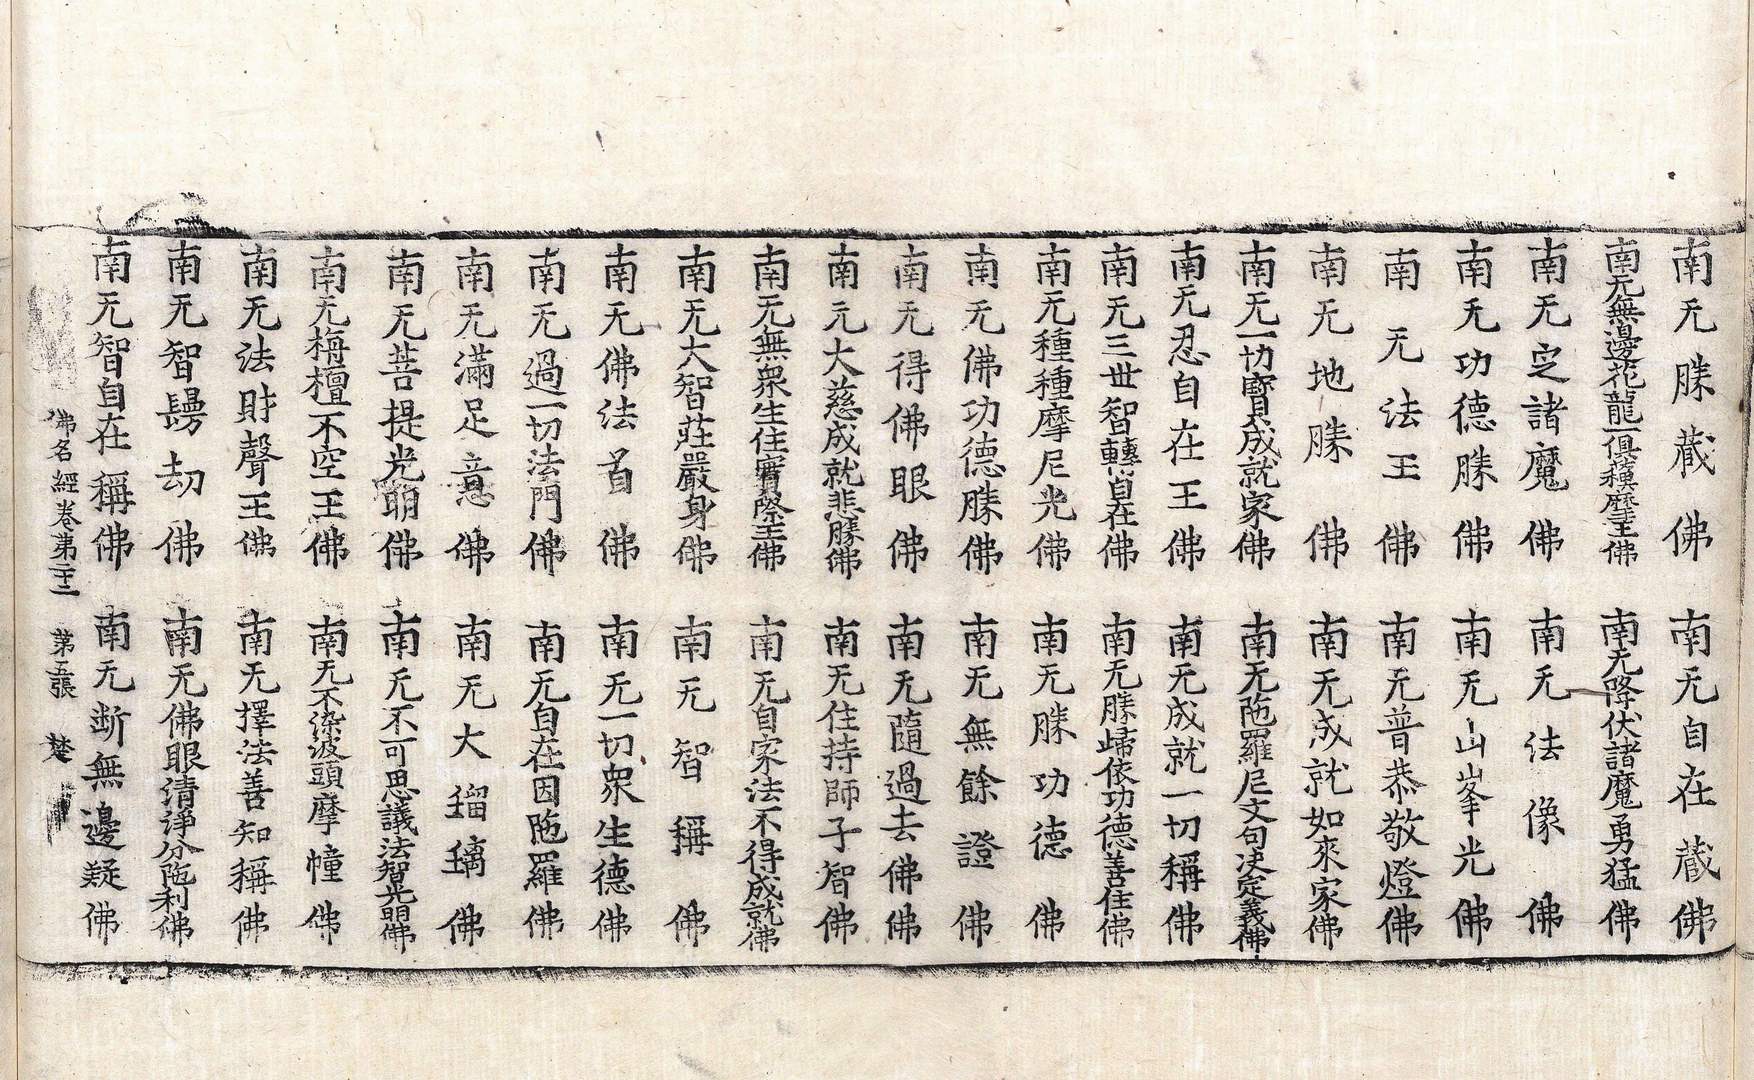 南无勝藏佛　南无自在藏佛
南无無邊花龍俱穪摩王佛　南无降伏諸魔勇猛佛
南无定諸魔佛　南无法像佛
南无功德勝佛　南无山峯光佛
南无法王佛　南无普恭敬燈佛
南无地勝佛　南无成就如來家佛
南无一切寳成就家佛　南无陁羅尼文句决定義佛
南无忍自在王佛　南无成就一切稱佛
南无三世智轉自在佛　南无勝歸依功德善住佛
南无種種摩尼光佛　南无勝功德佛
南无佛功德勝佛　南无無餘證佛
南无得佛眼佛　南无隨過去佛佛
南无大慈成就悲勝佛　南无住持師子智佛
南无無衆生住實際王佛　南无自家法不得成就佛
南无大智莊嚴身佛　南无智稱佛
南无佛法首佛　南无一切衆生德佛
南无過一切法門佛　南无自在因陁羅佛
南无滿足意佛　南无大瑠璃佛
南无菩提光明佛　南无不可思議法智光明佛
南无栴檀不空王佛　南无不染波頭摩幢佛
南无法財聲王佛　南无擇法善知稱佛
南无智劫佛　南无佛眼清淨分陁利佛
南无智自在稱佛　南无断無邊疑佛
佛名經卷第十二　第五張　楚